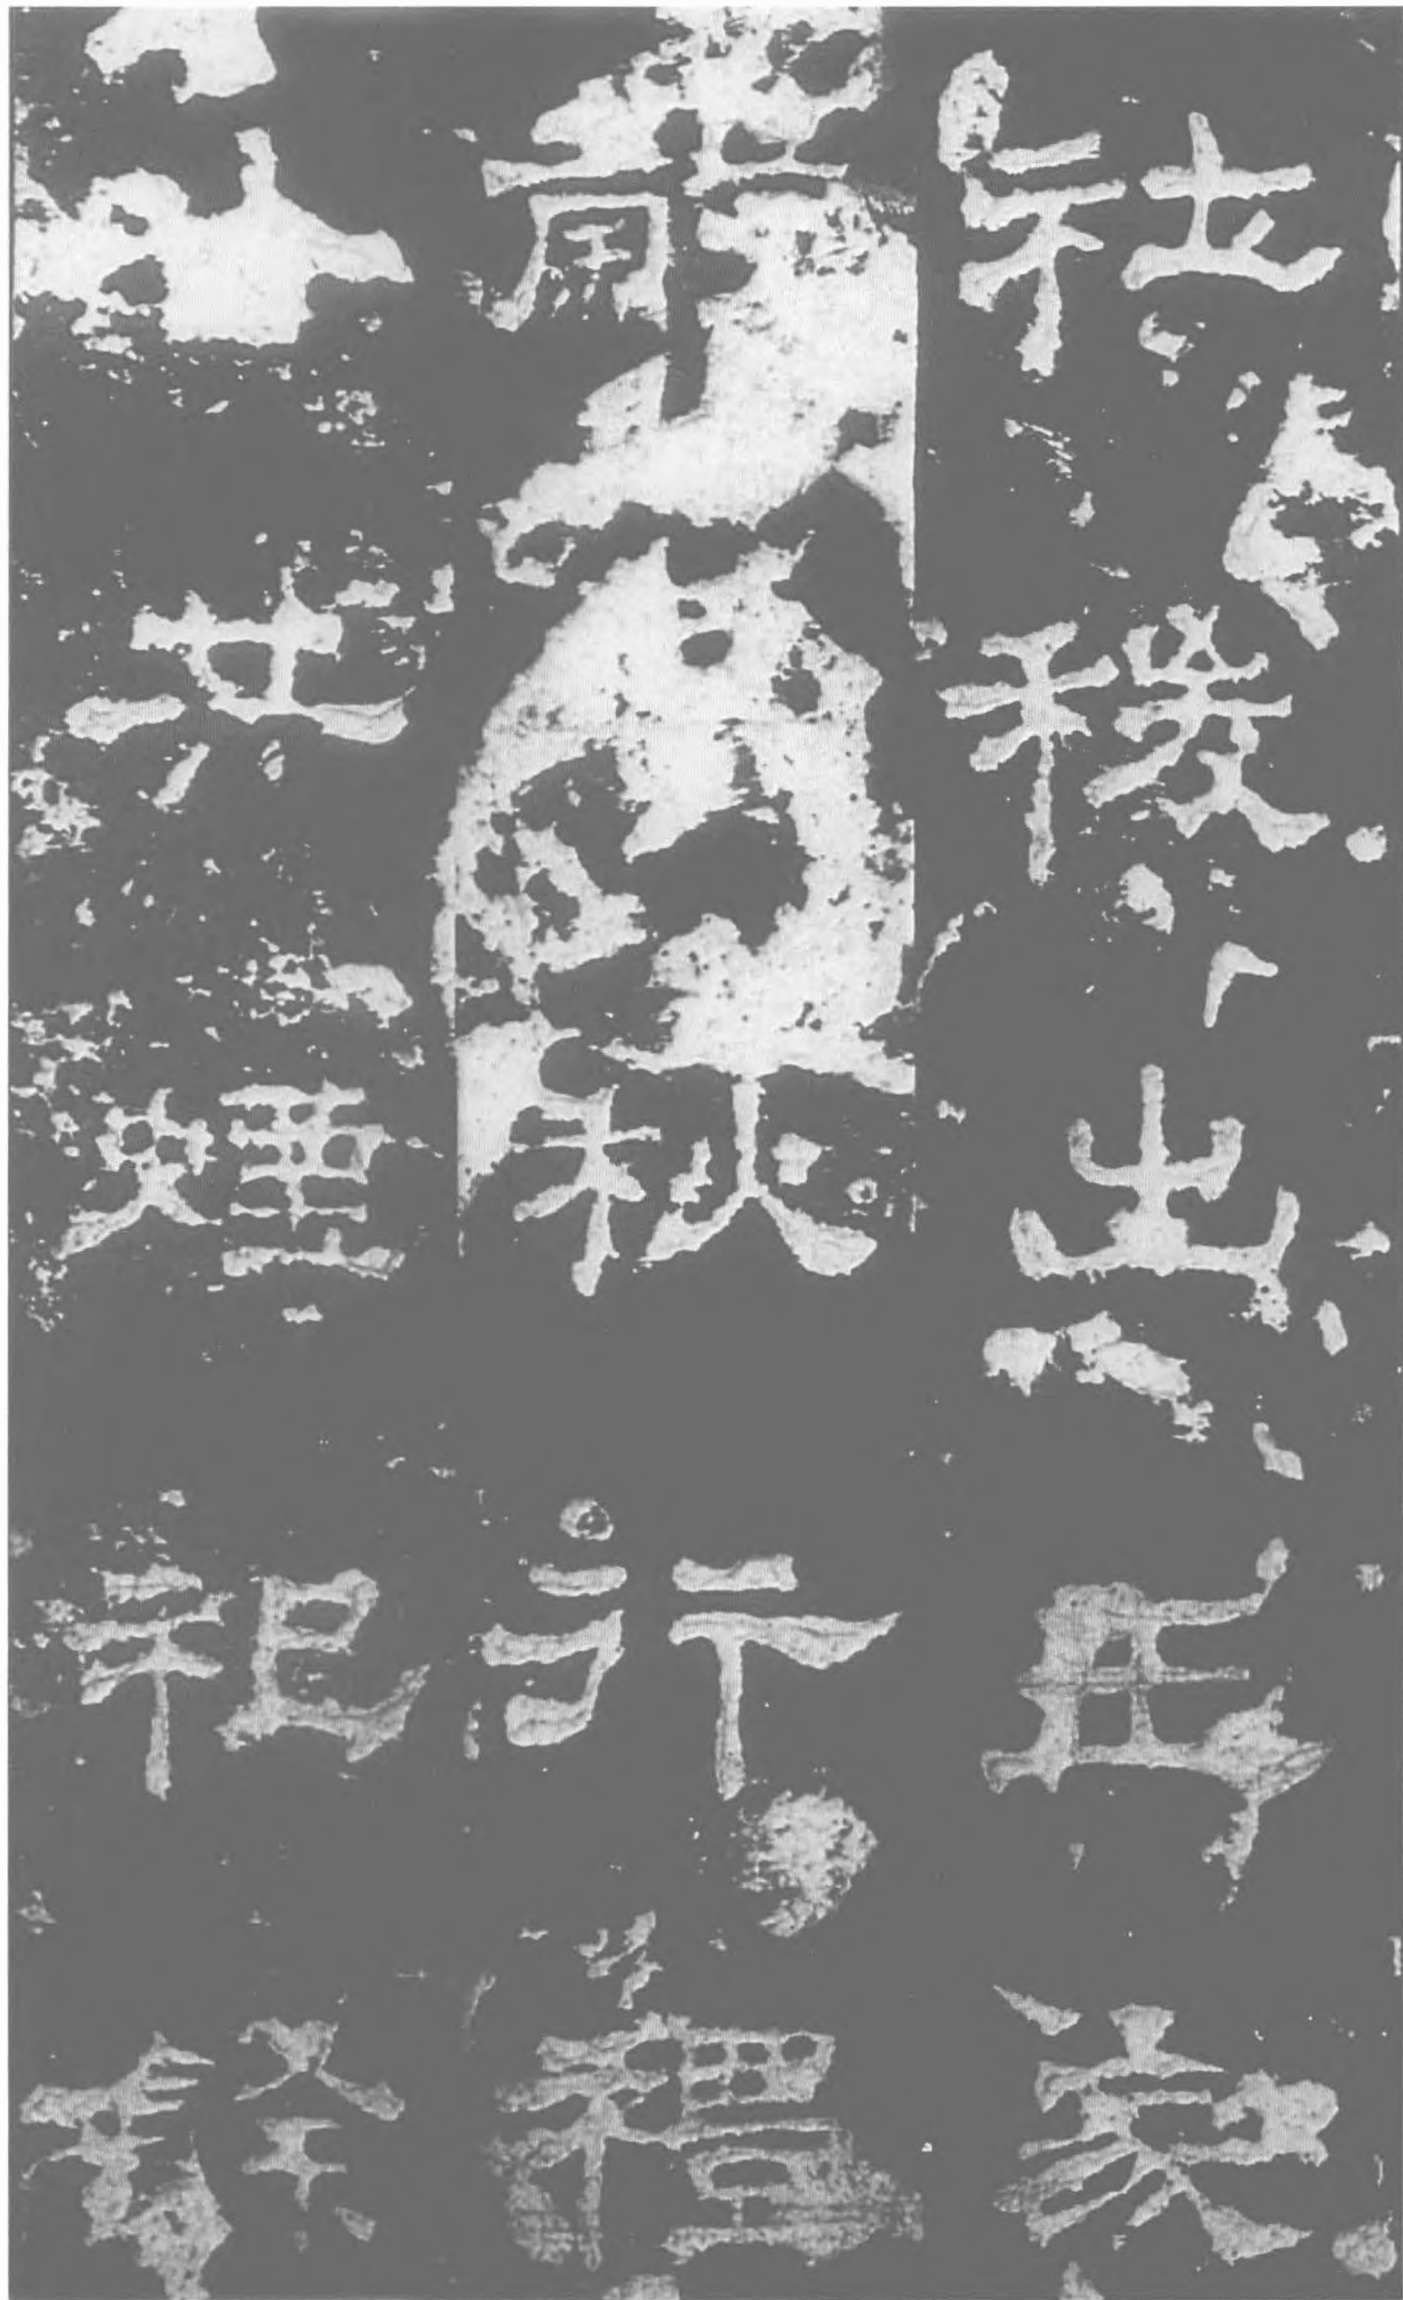 社稷出王家
穀春秋行禮
以共煙祀餘